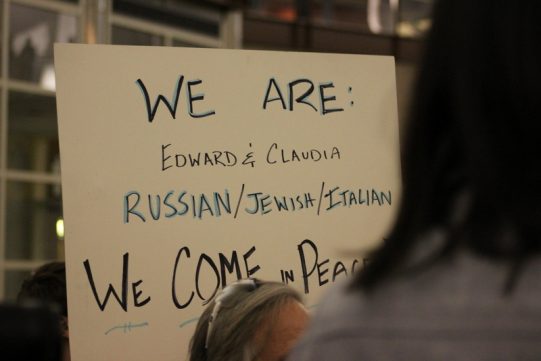 WE ARE:
EDWARD & CLAUDIA
RUSSIAN/JEWISH/ITALIAN
WE COME IN PEACE